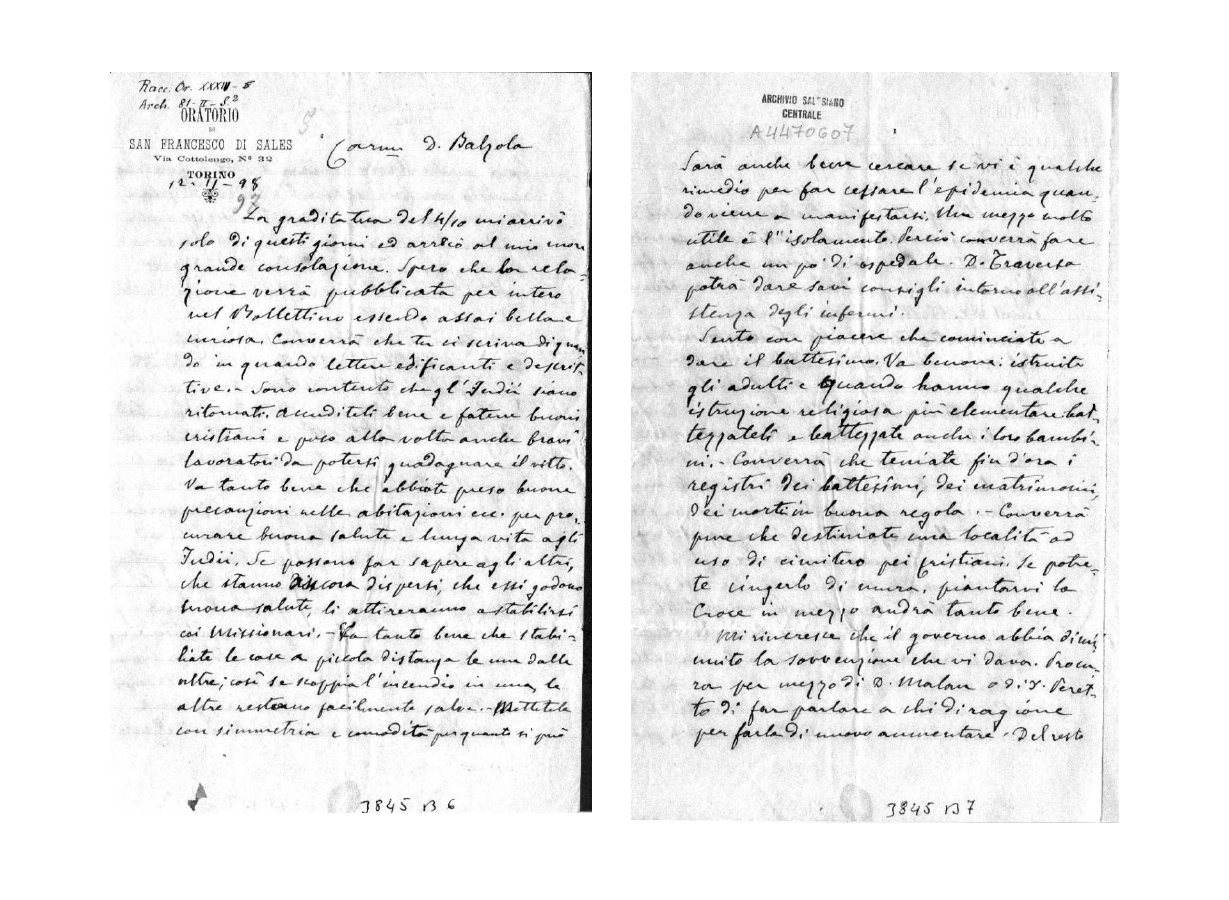 Racc. Or. XXXIV - 5
Arch. 81-II-S.2
ORATORIO
DI
SAN FRANCESCO DI SALES
Via Cottolengo, Nº 32
TORINO
12-11-98
97
5
Carmo D. Balzola
La gradita tua del 4/10 mi arrivò
solo di questi giorni ed arrecò al mio cuore
grande consolazione. Spero che la rela-
zione verrà pubblicata per intero
nel Bollettino essendo assai bella e
curiosa. Converrà che tu ci scriva di quan
do in quando lettere edificanti e descrit-
tive. Sono contento che gl'Indii siano
ritornati. Accuditeli bene e fatene buoni
cristiani e poco alla volta anche bravi
lavoratori da potersi guadagnare il vitto.
Va tanto bene che abbiate preso buone
precauzioni nelle abitazioni ecc. per pro-
curare buona salute e lunga vita agli
Indii. Se possono far sapere agli altri,
che stanno ancora dispersi, che essi godono
buona salute, li attireranno a stabilirsi
coi Missionari. - Va tanto bene che stabi-
liate le case a piccola distanza le une dalle
altre; così se scoppia l'incendio in una, le
altre restano facilmente salve. - Mettetele
con simmetria e comodità per quanto si può
3845 B 6
ARCHIVIO SALESIANO
CENTRALE
A4470607
Sarà anche bene cercare se vi è qualche
rimedio per far cessare l'epidemia quan-
do viene a manifestarsi. Un mezzo molto
utile è l'isolamento. Perciò converrà fare
anche un po' di ospedale. D. Traversa
potrà dare savi consigli intorno all'assi-
stenza degli infermi.
Sento con piacere che cominciate a
dare il battesimo. Va benone: istruite
gli adulti e quando hanno qualche
istruzione religiosa più elementare bat-
tezzateli e battezzate anche i loro bambi-
ni. - Converrà che teniate fin d'ora i
registri dei battesimi, dei matrimoni,
dei morti in buona regola. - Converrà
pure che destiniate una località ad
uso di cimitero pei cristiani. Se potre-
te cingerlo di mura, piantarvi la
Croce in mezzo andrà tanto bene.
Mi rincresce che il governo abbia dimi-
nuito la sovvenzione che vi dava. Procu-
ra per mezzo di D. Malan o di D. Peret-
to di far parlare a chi di ragione
per farla di nuovo aumentare. Del resto
3845 B 7